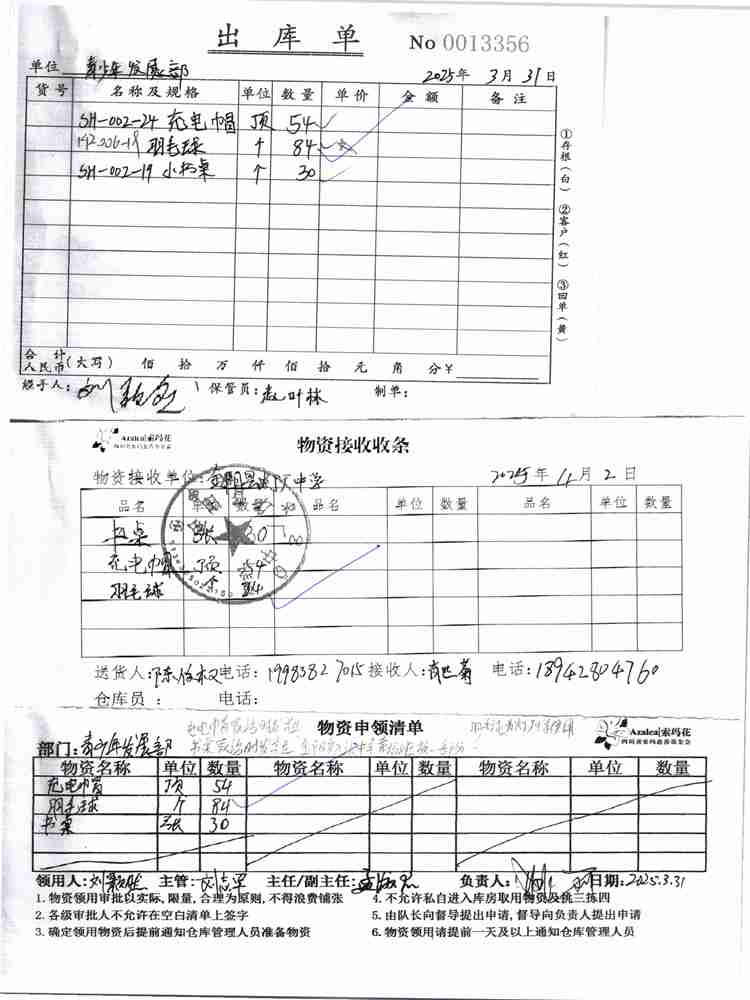 出库单 No 0013356
单位 青少年发展部 2025年 3月 31日
货号 名称及规格 单位 数量 单价 金额 备注
SH-002-24 充电帽 顶 54
羽毛球 个 84
SH-002-19 小书桌 个 30
①存根(白) ②客户(红) ③回单(黄)
合计人民币(大写) 佰 拾 万 仟 佰 拾 元 角 分 ¥
经手人: 保管员: 制单:
Azalea|索玛花
物资接收收条
物资接收单位: 中学 2025年 4月 2日
品名 单位 数量 品名 单位 数量 品名 单位 数量
书桌 张 30
充电帽 顶 54
羽毛球 个 84
送货人: 电话: 19983827015 接收人: 电话: 18942804760
仓库员: 电话:
物资申领清单
Azalea|索玛花
部门: 青少年发展部
物资名称 单位 数量 物资名称 单位 数量 物资名称 单位 数量
充电帽 顶 54
羽毛球 个 84
书桌 张 30
领用人: 主管: 主任/副主任: 负责人: 日期: 2025.3.31
1. 物资领用审批以实际, 限量, 合理为原则, 不得浪费铺张 4. 不允许私自进入库房取用物资及挑三拣四
2. 各级审批人不允许在空白清单上签字 5. 由队长向督导提出申请, 督导向负责人提出申请
3. 确定领用物资后提前通知仓库管理人员准备物资 6. 物资领用请提前一天及以上通知仓库管理人员